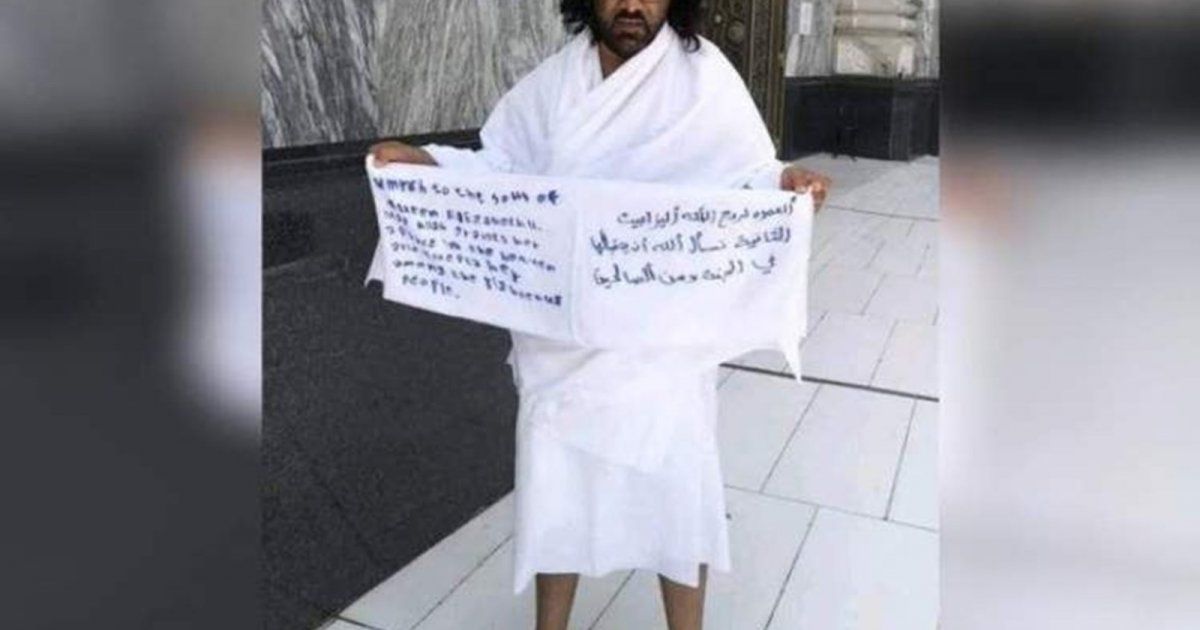 Umrah to the soul of
Queen Elizabeth II.
may Allah grants her
a place in the heaven
her
among the righteous
people.
ألعمره لروح الملكه أليزابيث
الثانيه نسأل ألله ان يتقبلها
في الجنه ومن ألصالحين